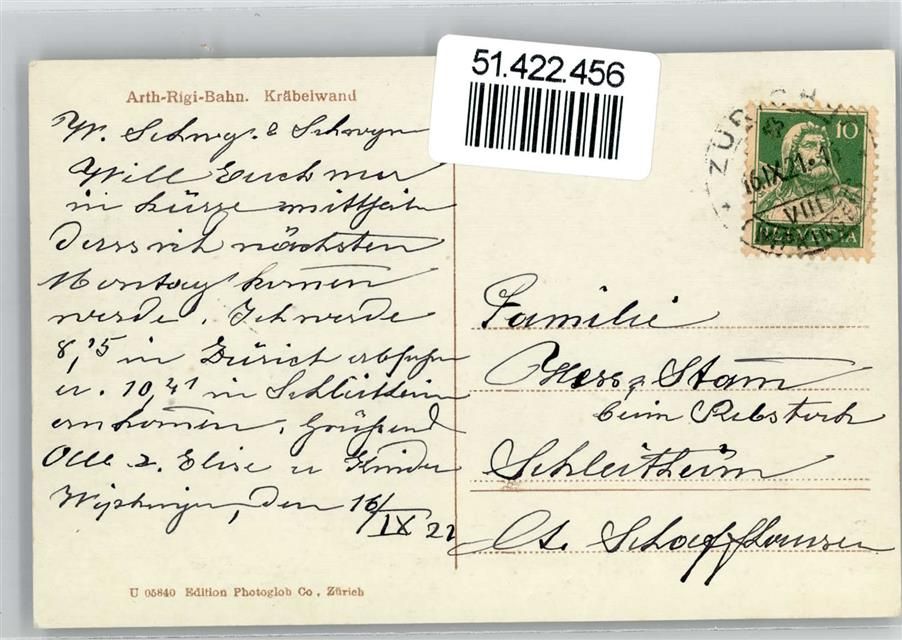 51.422.456
Arth-Rigi-Bahn. Kräbelwand
W. Schwg. & Schwgn
Will Euch nur
in kürze mitteilen
dass ich nächsten
Montag komen
werde. Ich werde
8,15 in Zürich abfahren
u. 10,41 in Schleitheim
ankomen. Grüßend
Elise u Kinder
den 16/IX 21
U 05840 Edition Photoglob Co., Zürich
ZÜRICH
16.IX.21
VIII
10
HELVETIA
Familie
Stam
beim Rebstock
Schleitheim
Ct. Schaffhausen